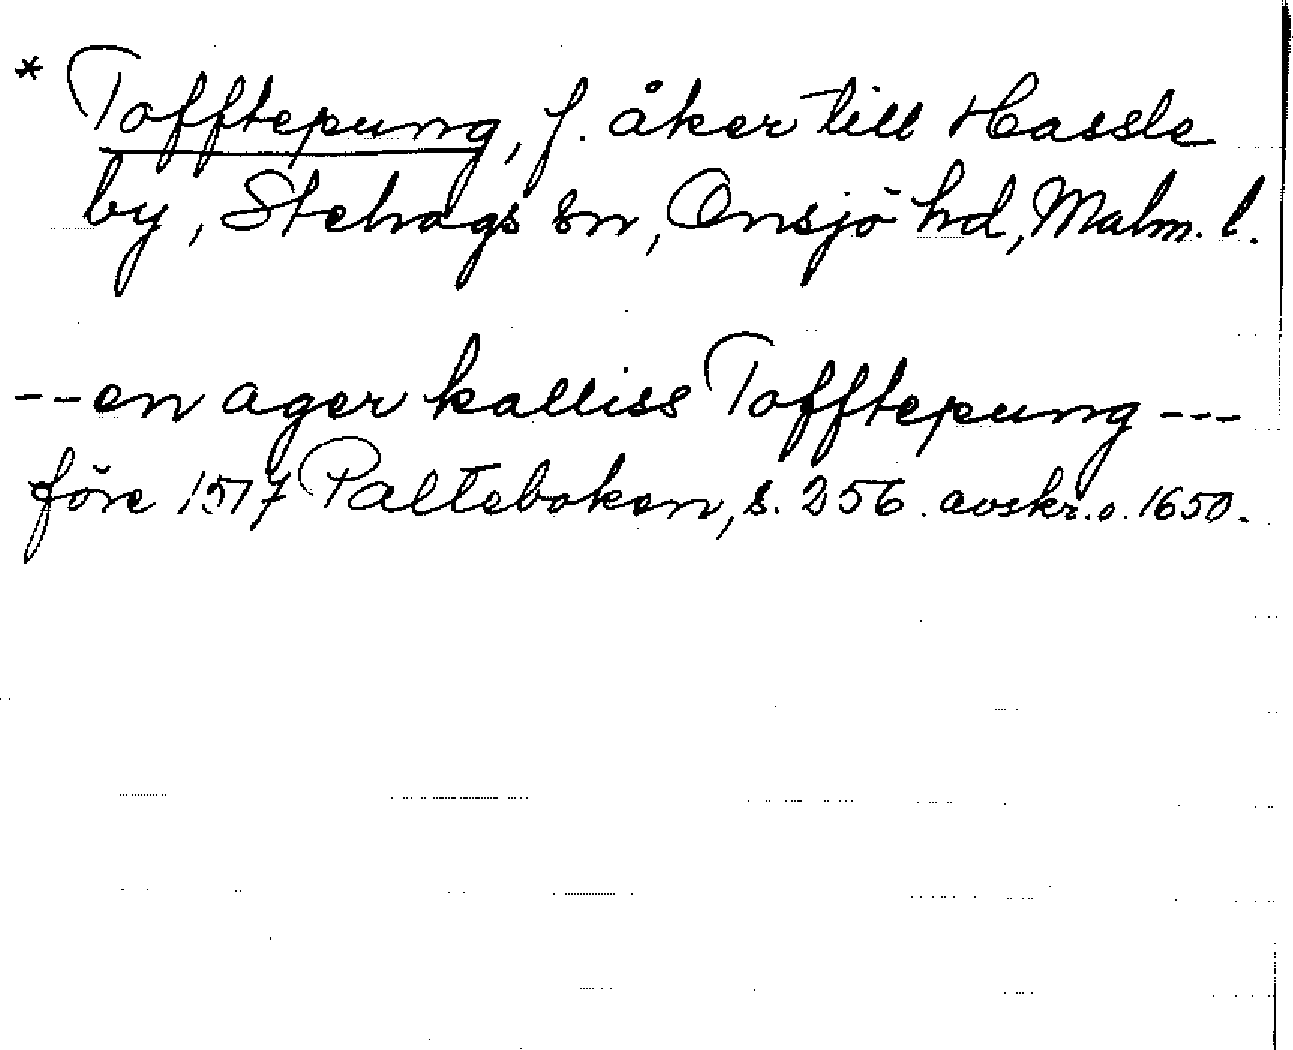 * Tofftepung, f. åker till Hassle
by, Stehags sn, Onsjö hd, Malm. l.
-- en ager kalliss Tofftepung ---
före 1517 Palteboken, s. 256. avskr. o. 1650.